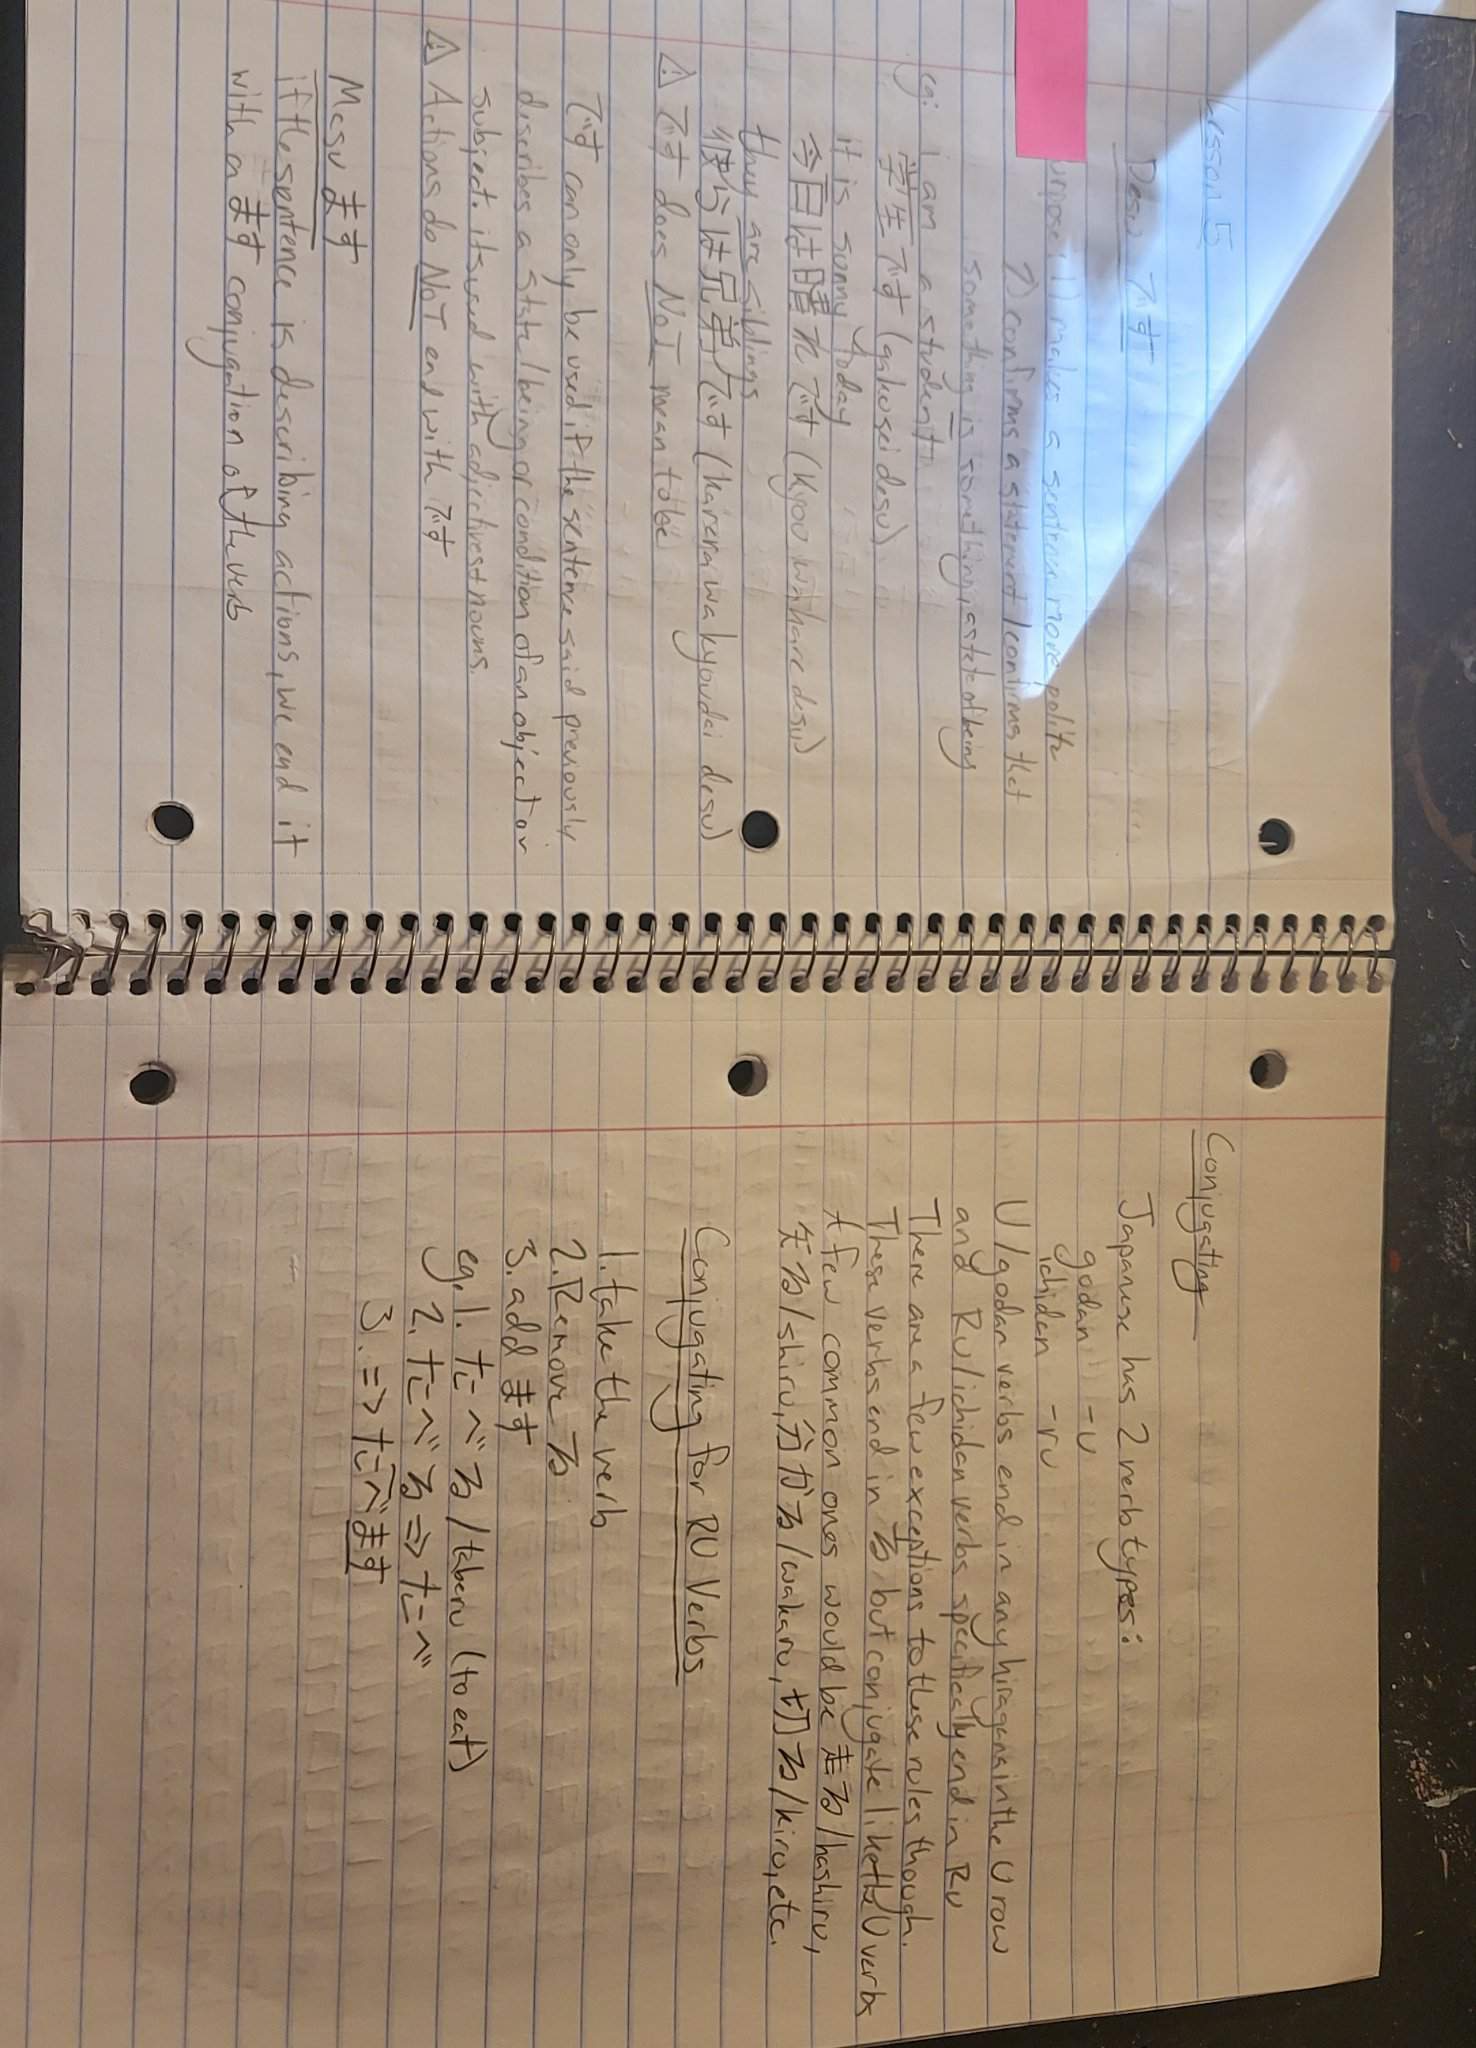 Lesson 5
Desu です
urpose: 1) makes a sentence more polite
2) confirms a statement / confirms that
something is something, a state of being
eg: I am a student
学生です (gakusei desu)
it is sunny today
今日は晴れです (kyou wa hare desu)
they are siblings
彼らは兄弟です (karera wa kyoudai desu)
⚠ です does NOT mean to be
です can only be used if the sentence said previously
describes a state/being or condition of an object or
subject. its used with adjectives + nouns.
⚠ Actions do NOT end with です
Masu ます
if the sentence is describing actions, we end it
with a ます conjugation of the verb
Conjugating
Japanese has 2 verb types:
godan -u
ichidan -ru
U/godan verbs end in any hiragana in the U row
and RU/ichidan verbs specifically end in RU
There are a few exceptions to these rules though.
These verbs end in る but conjugate like the U verbs
A few common ones would be 走る/hashiru,
知る/shiru, 分かる/wakaru, 切る/kiru, etc.
Conjugating for RU Verbs
1. take the verb
2. Remove る
3. add ます
eg. 1. たべる/taberu (to eat)
2. たべる => たべ
3. => たべます